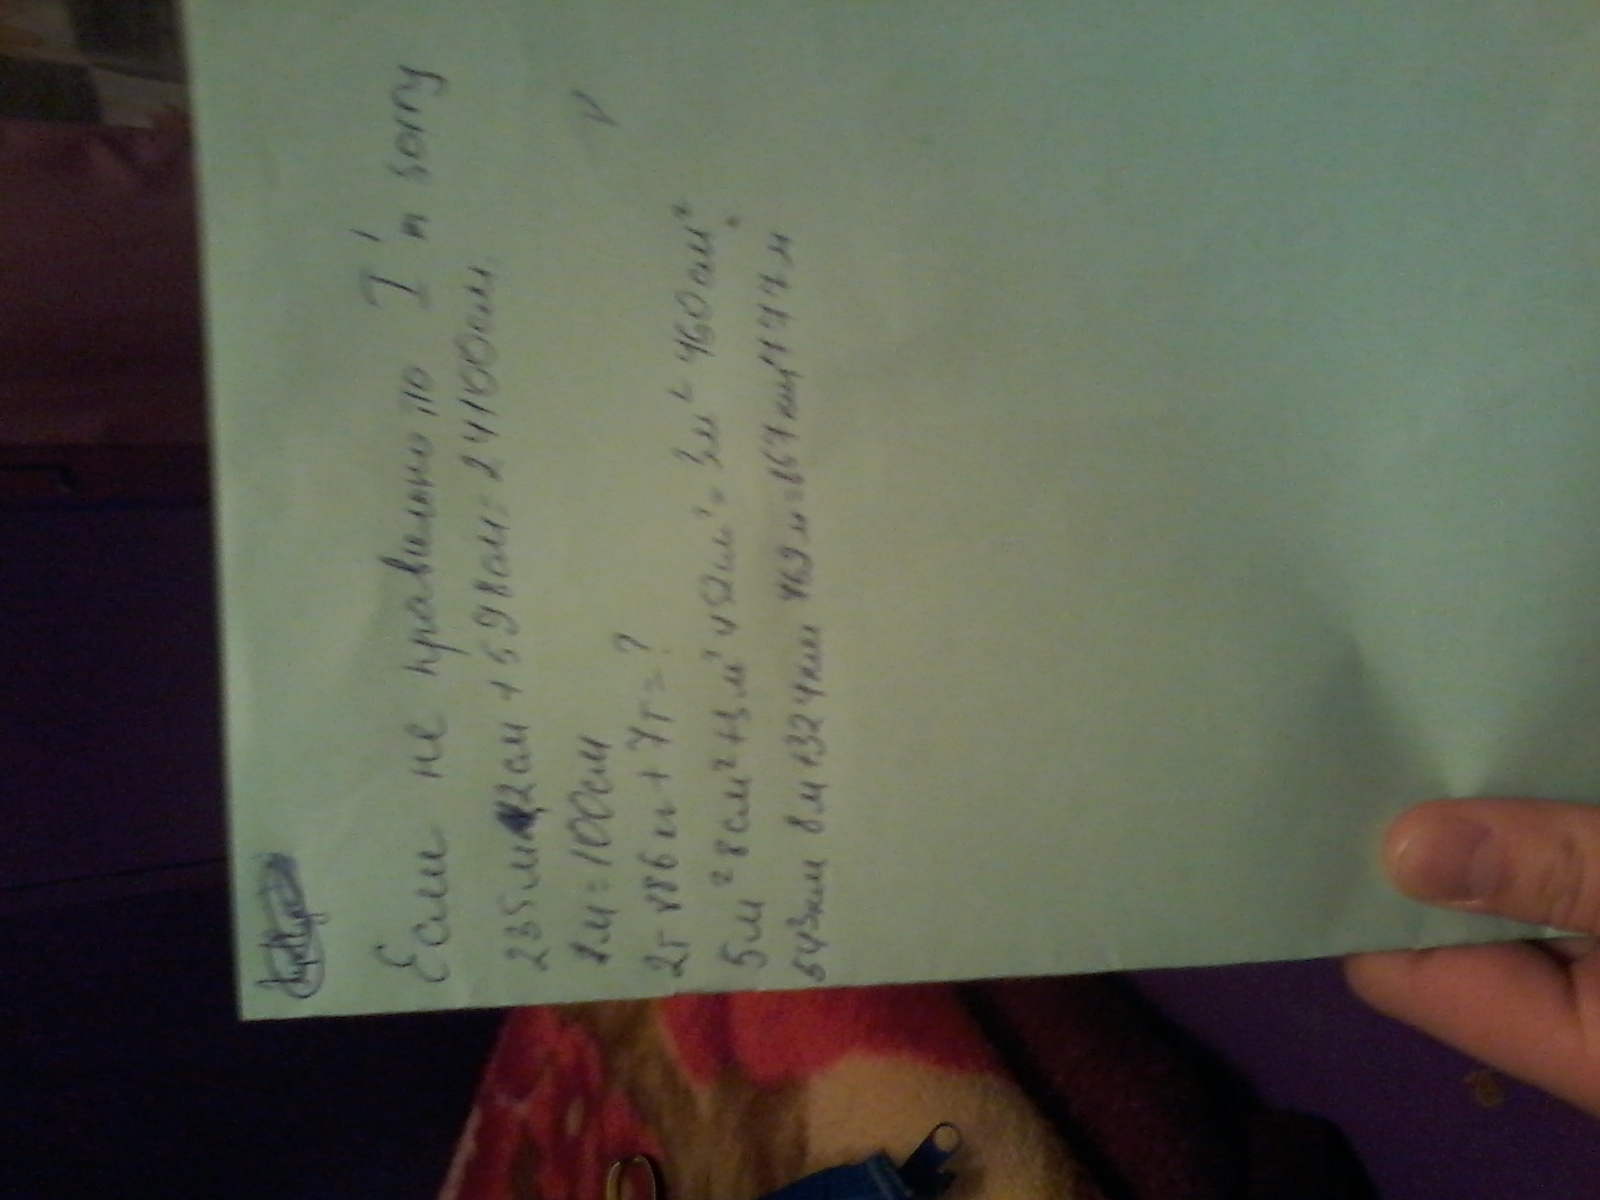 Если не правильно то I'm sorry
235м 2см + 598см = 24100см.
1м = 100см
2т 886кг + 7т = ?
5м² 8см² + 3м² 452см² = 3м² 460см²
543км 8м + 324км 469м = 867км 477м